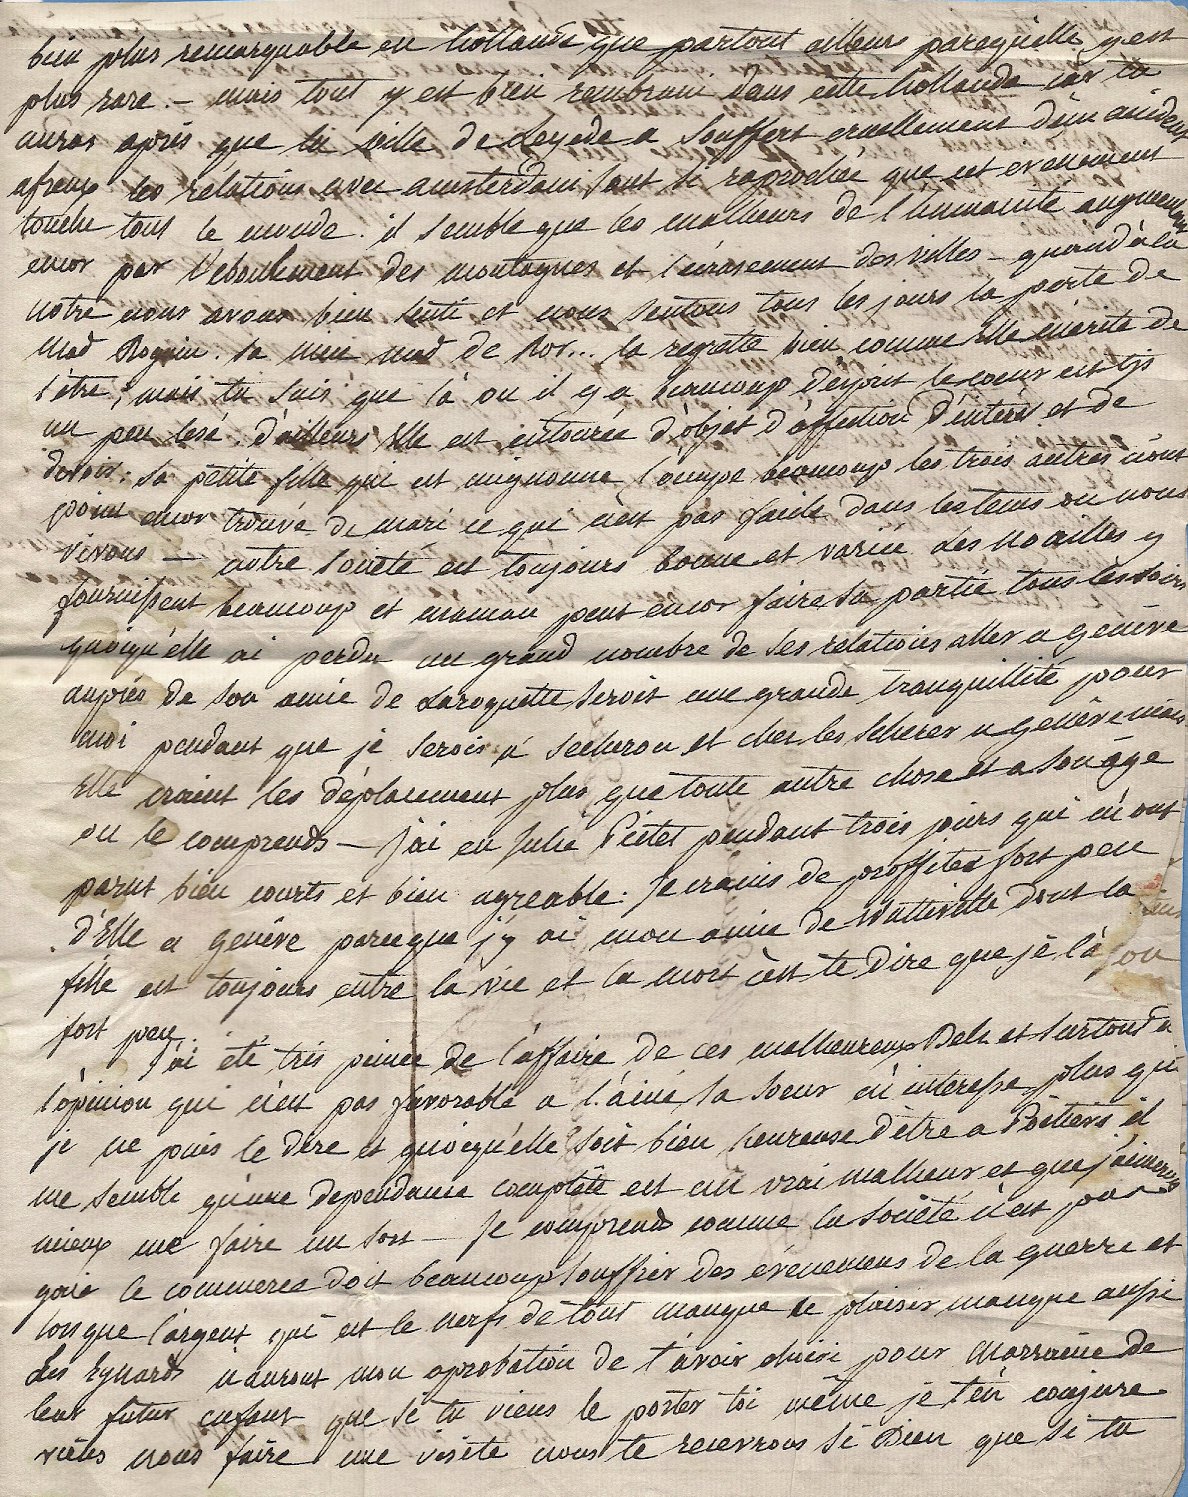 bien plus remarquable en hollande que partout ailleurs parcequ'elle y est
plus rare. – mais tout y est bien rembruni dans cette hollande car tu
auras apris que la ville de Leyde a souffert cruellement d'un accident
afreux les rélations avec amsterdam sont si raprochée que cet evenement
touche tout le monde. il semble que les malheurs de l'humanité augmentent
encor par l'eboulement des montagnes et l'écrasement des villes – quand à la
notre nous avons bien senti et nous sentons tous les jours la perte de
Mad Roguin. sa mere mad de Ros... la regrette bien comme elle mérite de
l'être, mais tu sais que là ou il y a beaucoup d'esprit le coeur est tjs
un peu lesé. d'ailleurs elle est entourée d'objet d'affection d'intéret et de
devoir. sa petite fille qui est mignonne l'ocupe beaucoup les trois autres n'ont
point encor trouvé de mari ce qui n'est pas facile dans les tems ou nous
vivons – notre société est toujours bonne et variée les noailles y
fournissent beaucoup et maman peut encor faire sa partie tous les soirs
quoiqu'elle ai perdu un grand nombre de ses relations aller a genève
auprès de son amie de Laroquette seroit une grande tranquillité pour
moi pendant que je serois à secheron et chez les scherer a genève mais
elle craint les déplacement plus que toute autre chose et a son âge
on le comprends – j'ai eu Julie Pictet pendant trois jours qui m'ont
parut bien courts et bien agreable. je crains de proffiter fort peu
d'elle a genève parceque j'y ai mon amie de Watteville dont la
fille est toujours entre la vie et la mort c'est te dire que je l'a
fort peu.
j'ai été très peinée de l'affaire de ces malheureux Delz et surtout de
l'opinion qui n'est pas favorable a l'ainé sa soeur m'interesse plus que
je ne puis le dire et quoiqu'elle soit bien heureuse d'être a Poitiers il
me semble qu'une dependance complète est un vrai malheur et que j'aimerois
mieux me faire un sort – Je comprends comme la société n'est pas
gaie le commerce doit beaucoup souffrir des événemens de la guerre et
lorsque l'argent qui est le nerfs de tout manque le plaisir manque aussi
Les Eynards auront mon aprobation de t'avoir choisi pour marraine de
leur futur enfant que si tu viens le porter toi même je t'en conjure
viens nous faire une visite nous te recevrons si bien que si tu